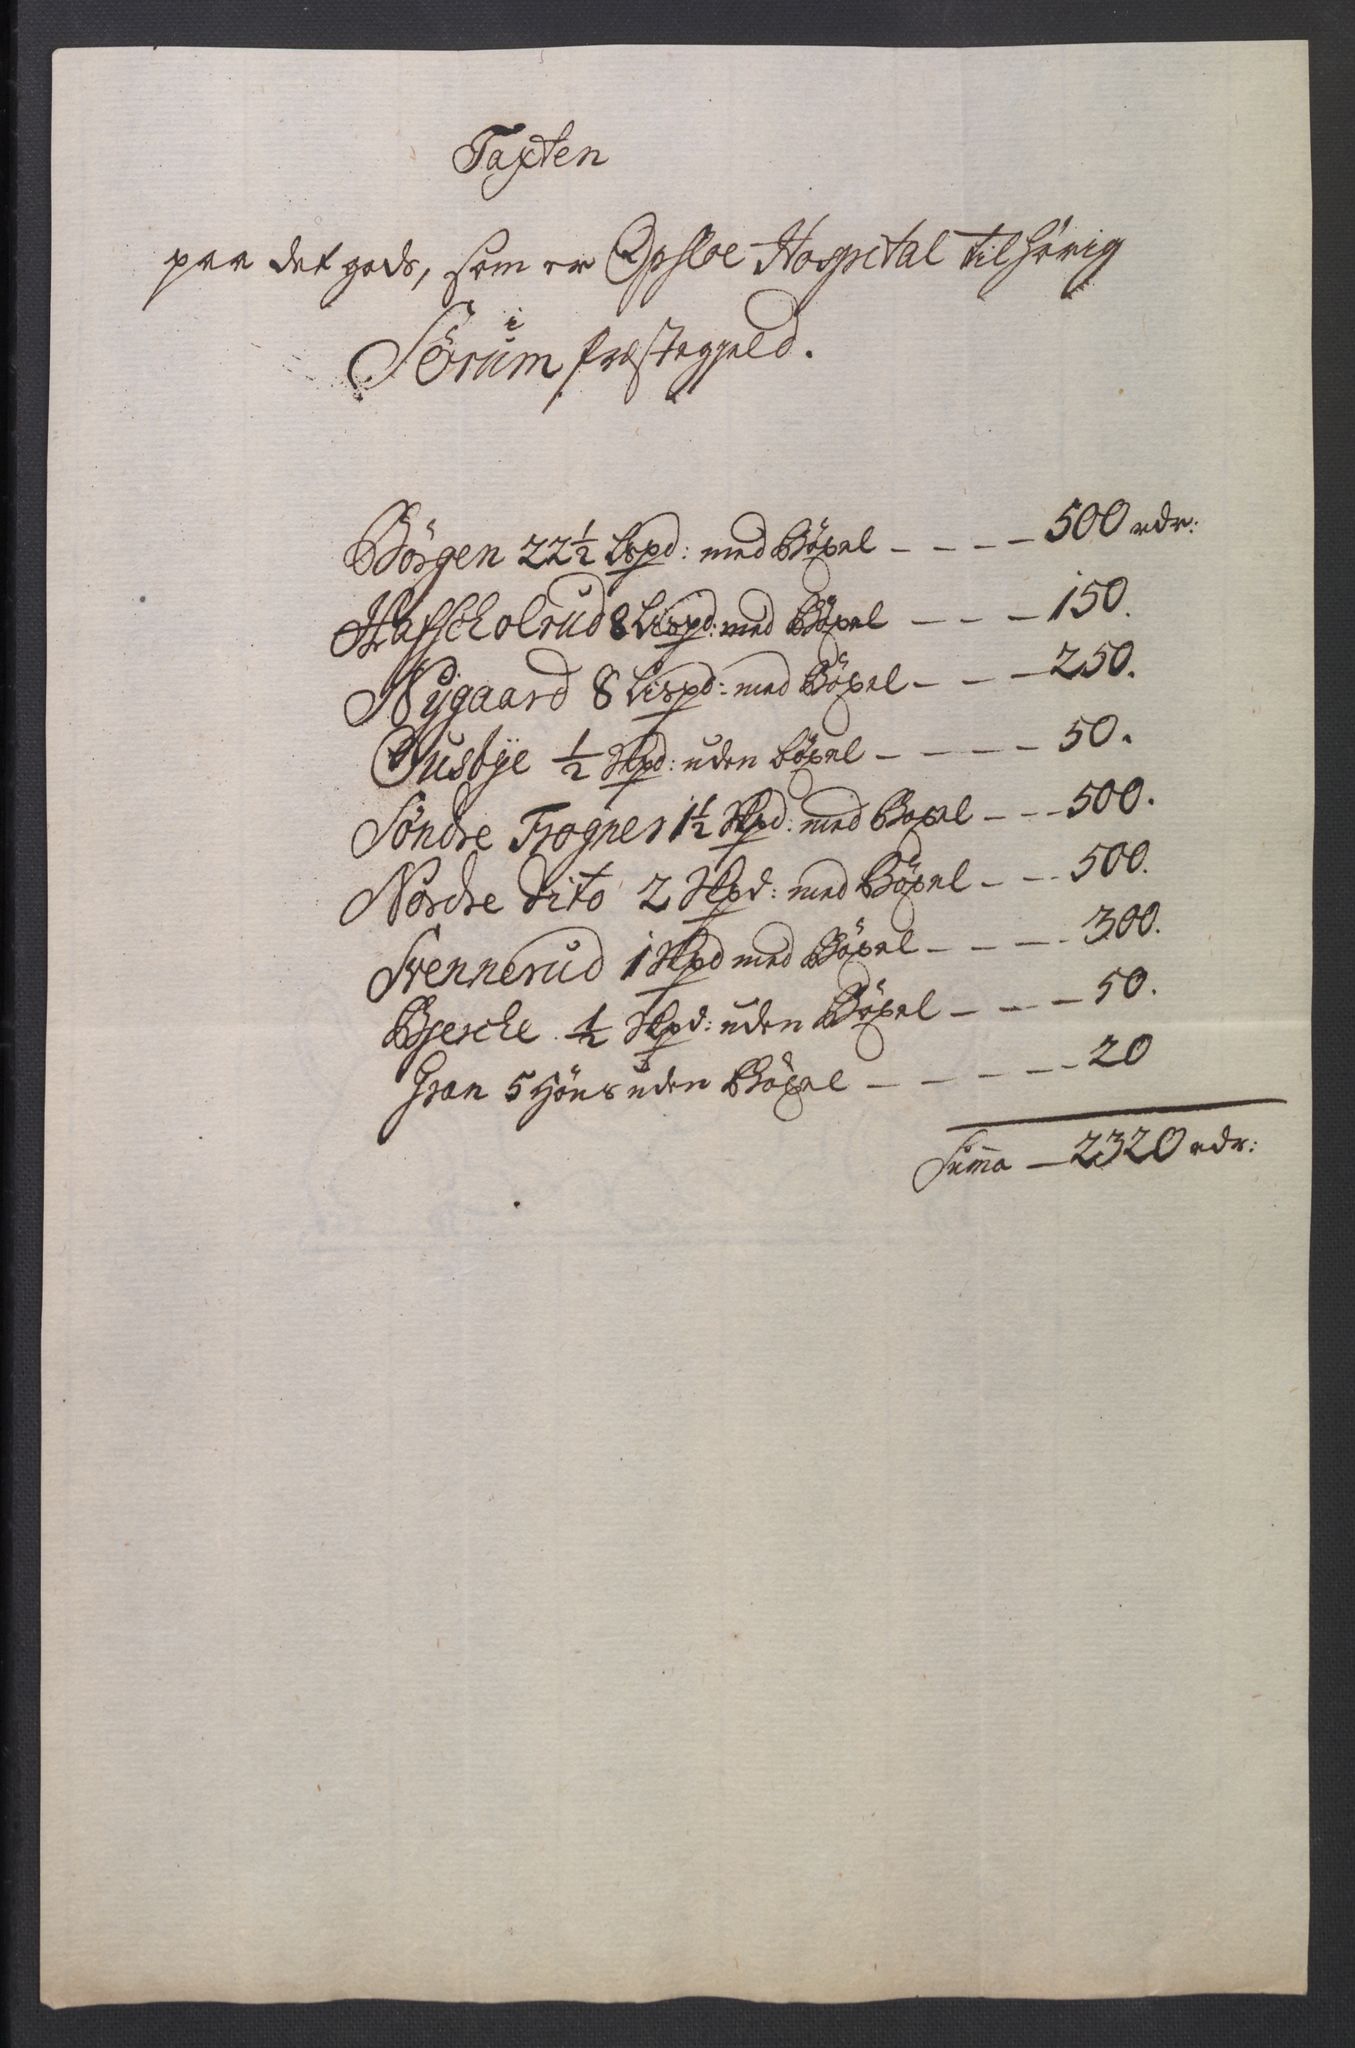 Taxten
paa det gods, som er Opsloe Hospital tilhörig
i
Sörum præstegield.
Börgen 22½ Lispd: med Böxel — — — — 500 rdr:
Hafscholrud 8 Lispd: med Böxel — — — 150.
Nÿgaard 8 Lispd: med Böxel — — — 250.
Ousbÿe ½ Skpd: uden böxel — — — — 50.
Söndre Frogner 1½ Skpd: med Boxel — — — 500.
Nordre dito 2 Skpd: med Böxel — — 500.
Svennerud 1 Skpd med Böxel — — — — 300.
Bjercke ½ Skpd: uden Böxel — — — 50.
Gran 5 Höns uden Böxel — — — — — 20
Suma — 2320 rdr: